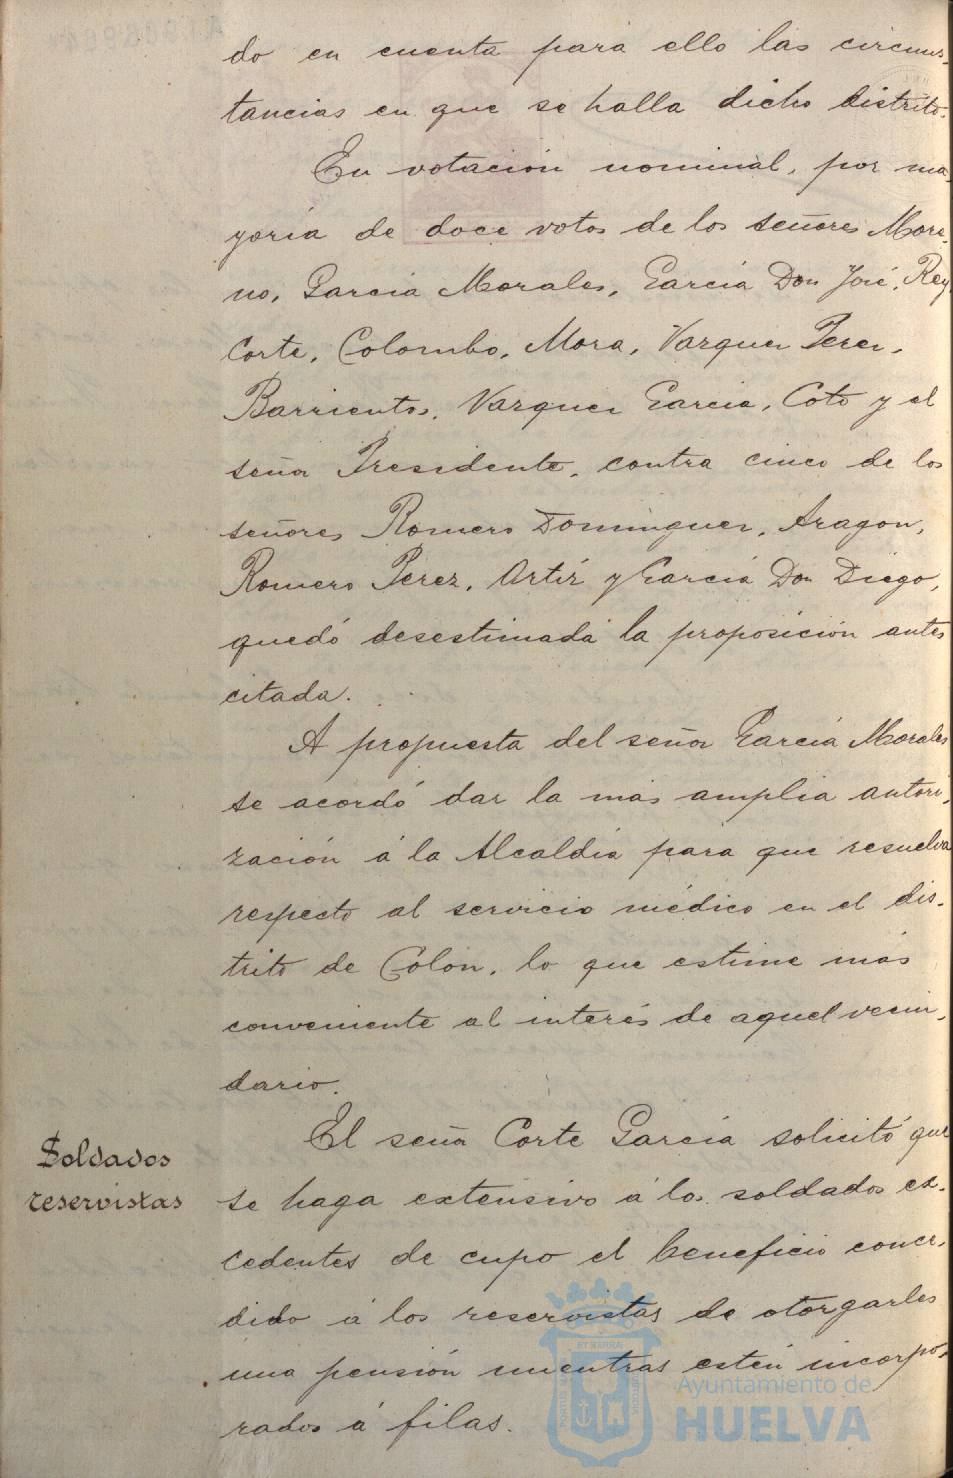 do en cuenta para ello las circuns-
tancias en que se halla dicho distrito.
En votación nominal, por ma-
yoría de doce votos de los señores More-
no, Garcia Morales, Garcia Don José, Rey
Corte, Colombo, Mora, Vazquez Perez,
Barrientos, Vazquez Garcia, Coto y el
señor Presidente, contra cinco de los
señores Romero Dominguez, Aragon,
Romero Perez, Ortíz y Garcia Don Diego,
quedó desestimada la proposición antes
citada.
A propuesta del señor Garcia Morales
se acordó dar la mas amplia autori-
zación á la Alcaldía para que resuelva
respecto al servicio médico en el dis-
trito de Colón, lo que estime más
conveniente al interés de aquel vecin-
dario.
Soldados
reservistas
El señor Corte Garcia solicitó que
se haga extensivo á los soldados ex-
cedentes de cupo el beneficio conce-
dido á los reservistas de otorgarles
una pensión mientras estén incorpo-
rados á filas.
Ayuntamiento de
HUELVA